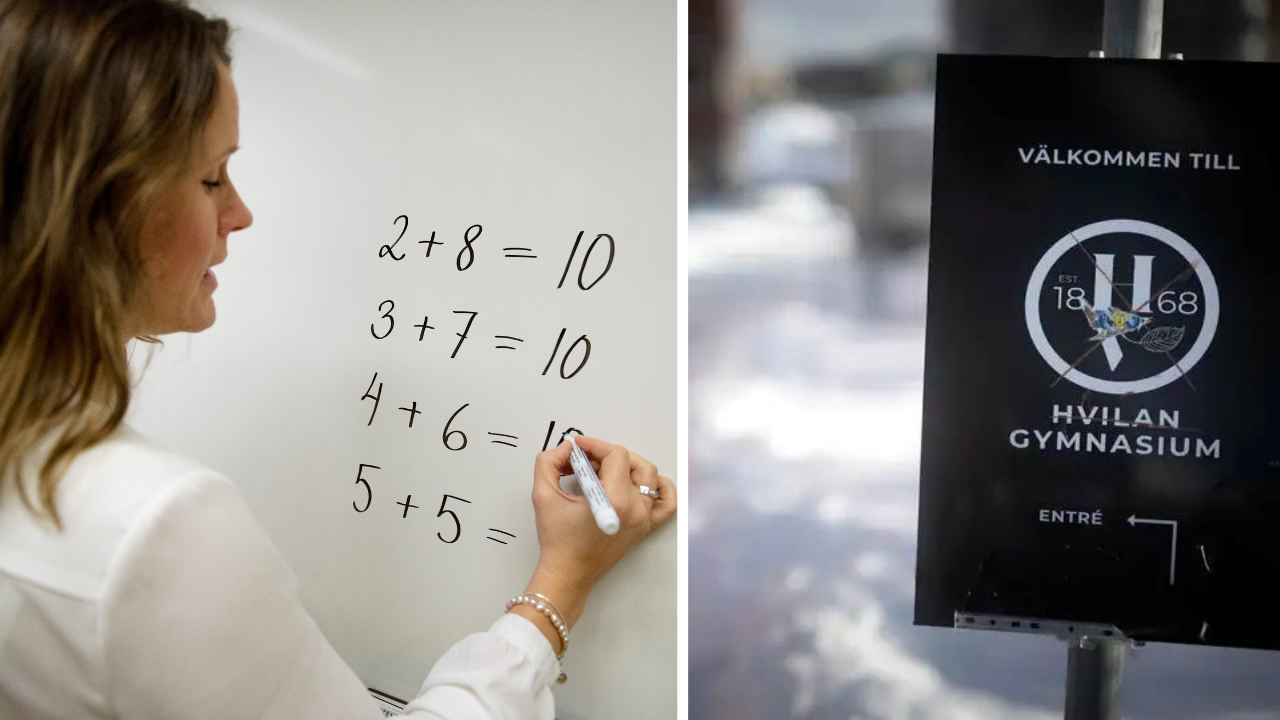 2 + 8 = 10
3 + 7 = 10
4 + 6 = 10
5 + 5 =
VÄLKOMMEN TILL
EST.
18 H 68
HVILAN
GYMNASIUM
ENTRÉ